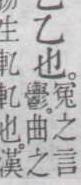 乙乙也。
冤之言
鬱。曲之
生軋軋也。漢